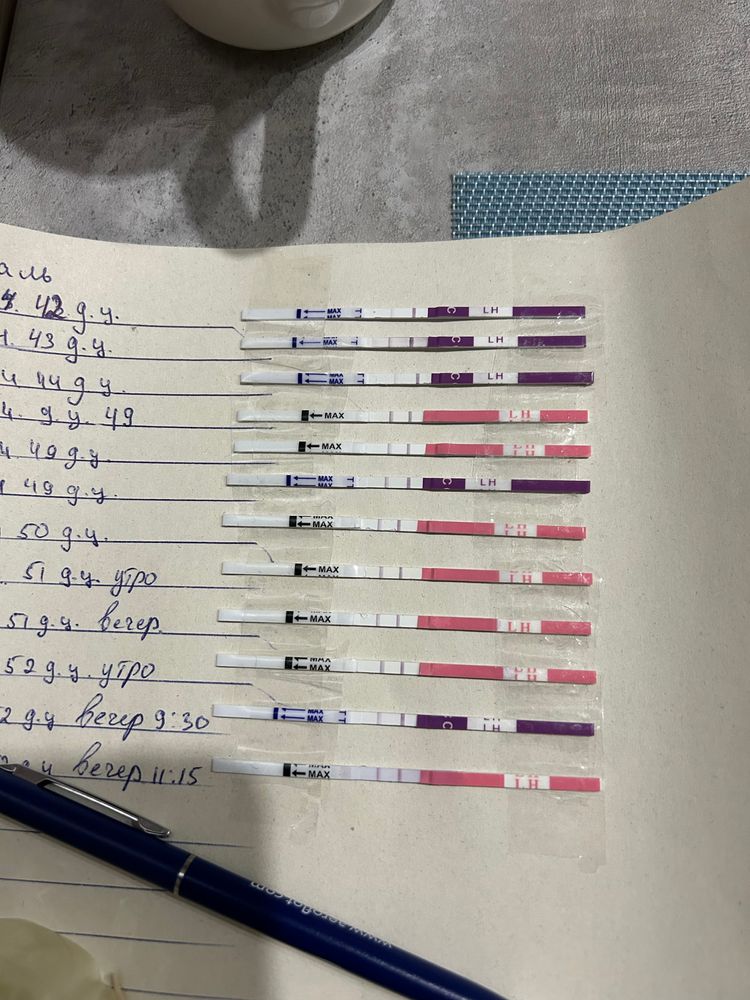 аль
42 д.ц.
MAX MAX T C LH
43 д.ц.
MAX T C LH
44 д.ц.
MAX MAX T C LH
4. д.ц. 49
MAX LH
49 д.ц
MAX LH
49 д.ц.
MAX MAX T C LH
50 д.ц.
MAX MAX LH LH
51 д.ц. утро
MAX LH
51 д.ц. вечер
MAX LH
52 д.ц. утро
MAX MAX LH LH
2 д.ц вечер 9:30
MAX MAX T C LH
д.ц вечер 11:15
MAX LH
www.aeroflot.com